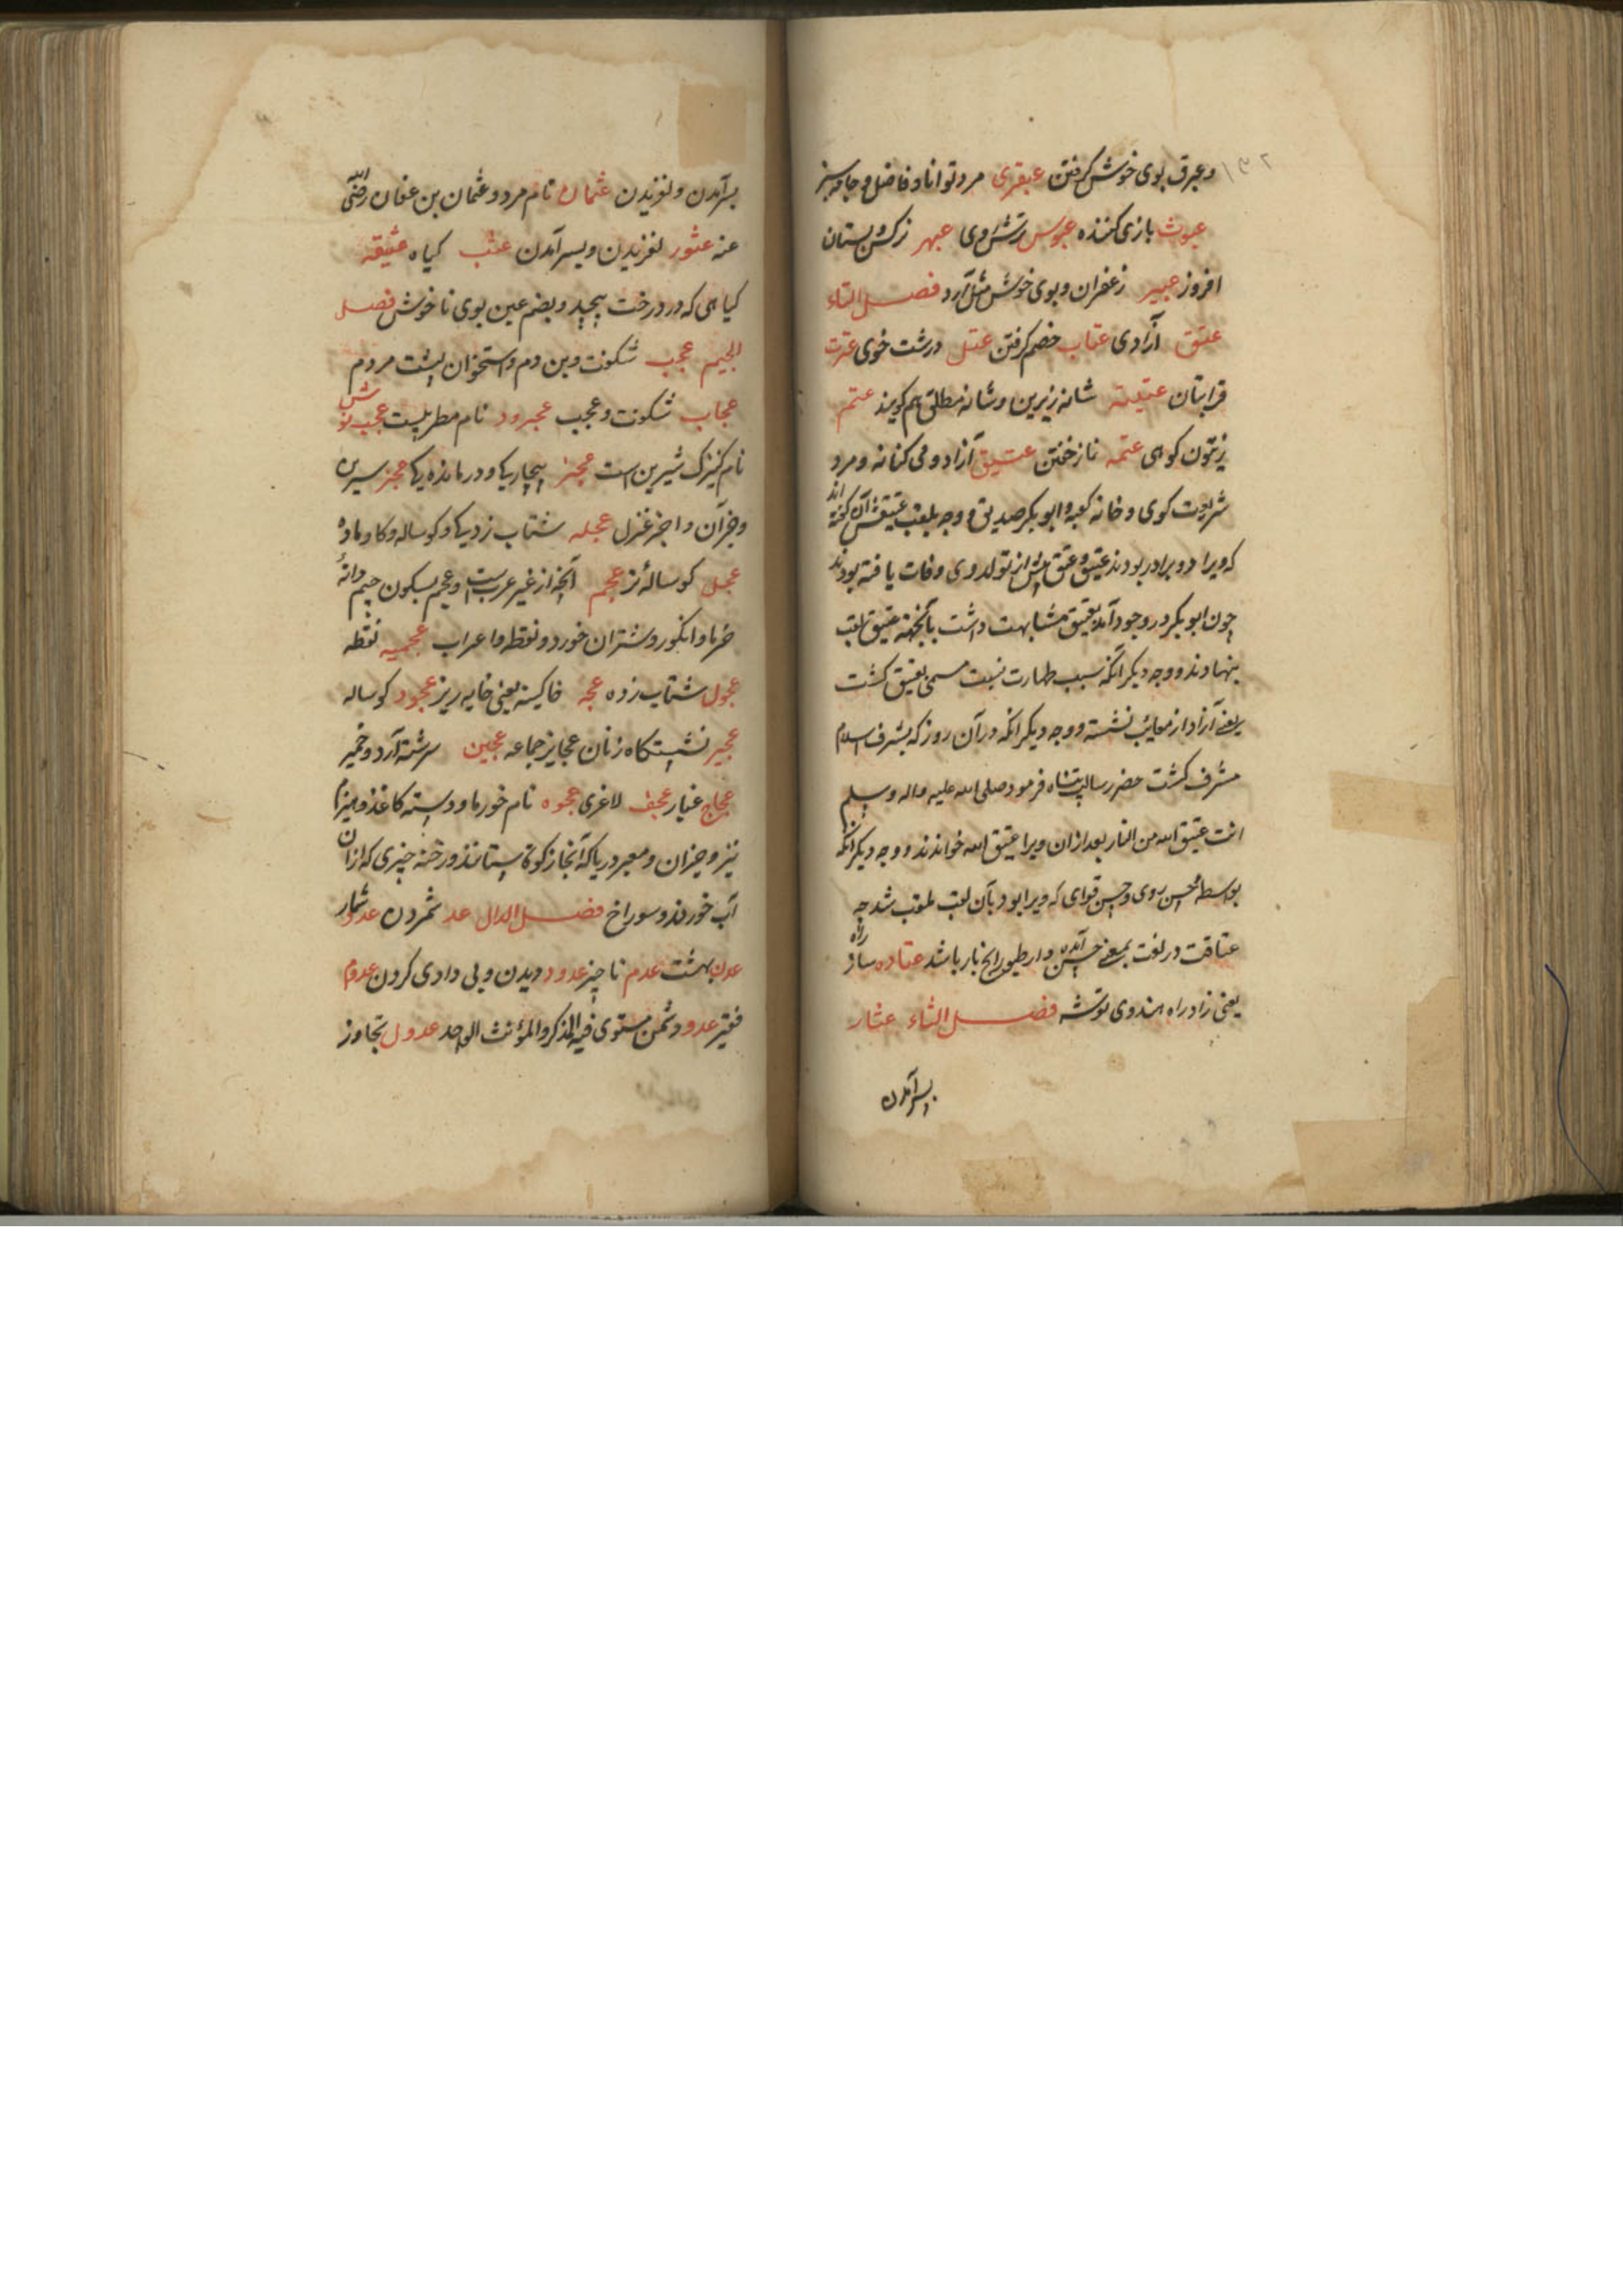 ۱۳۲
وعبرق بوی خوش گرفتن عبقری مرد توانا و فاضل و جامه سبز
عبوث بازی کننده عبوس ترش روی عبهر نرکس بستان
افروز عبیر زعفران و بوی خوش مثل آرد فصل التاء
عتق آزادی عتاب خصم کرفتن عتل درشت خوی عترت
قرابتان شانه زیرین و شانه مطلق هم کویند عتم
زیتون کوهی عتمه نماز خفتن عتیق آزاد و می کهنه و مرد
شریعت کوی و خانه کعبه و ابوبکر صدیق و وجه بلقب عتیقش آن کفته اند
که ویرا دو برادر بودند عتیق و عتق پیش از تولد وی وفات یافته بودند
چون ابوبکر در وجود آمد بعتیق مشابهت داشت بآنجهته عتیق لقب
بنهادند و وجه دیکر آنکه سبب طهارت نسبت مسمی بعتیق کشت
یعنی آزاد از معایب نشسته و وجه دیکر آنکه در آن روز که بشرف اسلام
مشرف کشت حضرت رسالت پناه فرمود صلی الله علیه واله وسلم
انت عتیق الله من النار بعد ازان ویرا عتیق الله خواندند و وجه دیکر آنکه
بواسطه حسن روی و حسن که ویرا بود بآن لقب ملقب شد چه
عتاقت در لغت بمعنی آمدن باشد عتاده ساز راه
یعنی زاد راه هندوی توشه فصل الثاء عثار
بسر آمدن
بسر آمدن و لغزیدن عثمان نام مرد و عثمان بن عفان رضی الله
عنه عثور لغزیدن و بسر آمدن عثب کیاه عثیقه
کیاهی که در درخت پیچید و بضم عین بوی ناخوش فصل
الجیم عجب شکفت و بن دم و استخوان پشت مردم
عجاب شکفت و عجب عجرود نام مطربیست عجب نوش
نام کنیزک شیرین است عجز بیچارگی و درماندگی عجز سرین
و جز آن و اجز غزل عجله شتاب زدگی و کوساله و کاو ماده
عجل کوساله نر عجم آنچه از غیر عربست و عجم بسکون جیم دانه
خرما و انکور و شتران خورد و نقطه و اعراب عجمیه نقطه
عجول شتاب زده عجه خاکینه یعنی خایه ریز عجود کوساله
عجیر نشستگاه زنان عجایز جماعه عجین سرشته آرد و خمیر
عجاج غبار عجف لاغری عجوه نام خورما و دسته کاغذ و هیزم
نیز و جز آن و معبر دریا که آنجا زکوة ستانند و رخنه چیزی که ازان
آب خورند و سوراخ فصل الدال عد شمردن عدو شمار
عدن بهشت عدم ناچیز عدود دیدن و بی دادی کردن عدوم
فقیر عدو دشمن مستوی فیه المذکر و المؤنث الواحد عدول تجاوز